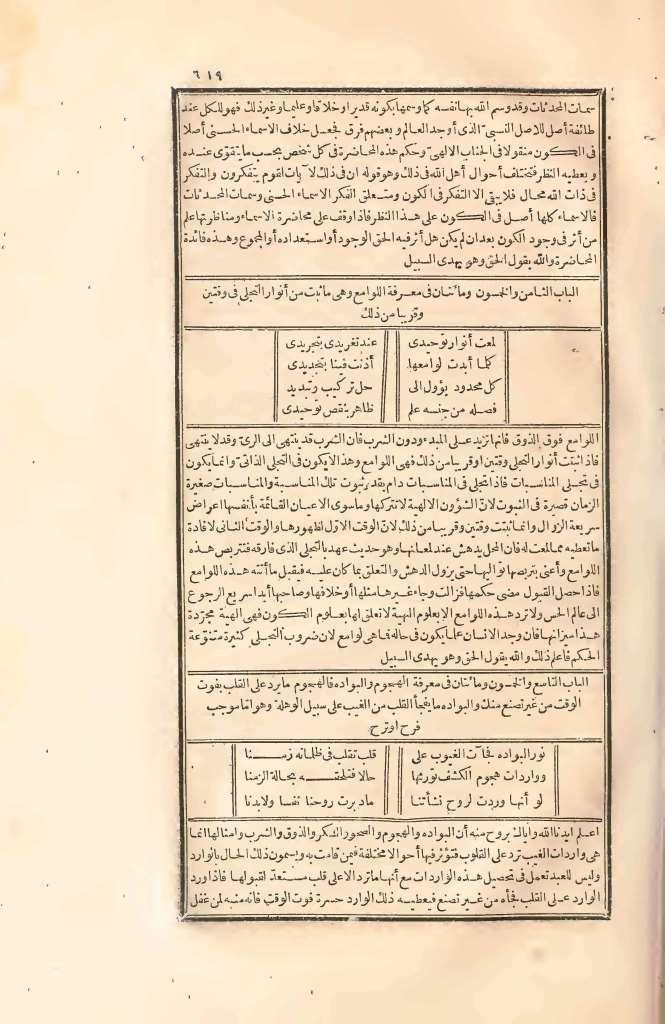 ٦١٩
سمات المحدثات وقد وسم الله بها نفسه كما وسمها بكونه قديرا وخلاقا وعليما وغير ذلك فهو للكل عند
طائفة أصل للاصل النسبى الذى أوجد العالم وبعضهم فرق فجعل خلاف الاسماء الحسنى أصلا
فى الكون منقولا فى الجناب الالهى وحكم هذه المحاضرة فى كل شخص بحسب ما يتقوى عنده
ويعطيه النظر فتختلف أحوال أهل الله فى ذلك وهو قوله ان فى ذلك لآيات لقوم يتفكرون والتفكر
فى ذات الله محال فلا يبقى الا التفكر فى الكون ومتعلق الفكر الاسماء الحسنى وسمات المحدثات
فالاسماء كلها أصل فى الكون على هذا النظر فاذا وقف على محاضرة الاسماء ومناظرتها علم
من أثر فى وجود الكون بعد ان لم يكن هل أثر فيه الحق الوجود أو استعداده أو المجموع وهذه فائدة
المحاضرة والله يقول الحق وهو يهدى السبيل
الباب الثامن والخمسون ومائتان فى معرفة اللوامع وهى ما ثبت من أنوار التجلى فى وقتين
وقريبا من ذلك
لمعت أنوار توحيدى عند تفريدى بتجريدى
كلما أبدت لوامعها أذنت فينا بتجديدى
كل محدود يؤول الى حل تركيب وتبديد
فصله من جنسه علم ظاهر بنقص توحيدى
اللوامع فوق الذوق فانها تزيد على المبدء ودون الشرب فان الشرب قد ينتهى الى الرى وقد لا ينتهى
فاذا ثبتت أنوار التجلى وقتين او قريبا من ذلك فهى اللوامع وهذا لا يكون فى التجلى الذاتى وانما يكون
فى تجلى المناسبات فاذا تجلى فى المناسبات دام بقدر ثبوت تلك المناسبة والمناسبات صغيرة
الزمان قصيرة فى الثبوت لان الشؤون الالهية لا تتركها وما سوى الاعيان القائمة بأنفسها اعراض
سريعة الزوال وانما ثبتت وقتين وقريبا من ذلك لان الوقت الاول لظهورها والوقت الثانى لافادة
ما تعطيه مما لمعت له فان المحل يدهش عند لمعانها وهو حديث عهد بالتجلى الذى فارقه فتتربص هذه
اللوامع وأعنى بتربصها توالها حتى يزول الدهش والتعلق بما كان عليه فيقبل ما أتته هذه اللوامع
فاذا حصل القبول مضى حكمها فزالت وجاء غيرها مثلها أو خلافها وصاحبها أبدا سريع الرجوع
الى عالم الحس ولا ترد هذه اللوامع الا بعلوم الهية لا تعلق لها بعلوم الكون فهى الهية مجردة
هذا ميزانها فان وجد الانسان علما يكون فى حاله فما هى لوامع لان ضروب التجلى كثيرة متنوعة
الحكم فاعلم ذلك والله يقول الحق وهو يهدى السبيل
الباب التاسع والخمسون ومائتان فى معرفة الهجوم والبواده فالهجوم ما يرد على القلب بفوت
الوقت من غير تصنع منك والبواده ما يفجأ القلب من الغيب على سبيل الوهلة وهو اما موجب
فرح او ترح
نور البواده فجآت الغيوب على قلب تقلب فى ظلمائه زمنا
وواردات هجوم الكشف تورثها حالا فتلحقه بحالة الزمنا
لو أنها وردت لروح نشأتنا ما دبرت روحنا نفسا ولا بدنا
اعلم ايدنا الله واياك بروح منه أن البواده والهجوم والصحو والسكر والذوق والشرب وامثالها انما
هى واردات الغيب ترد على القلوب فتؤثر فيها أحوالا مختلفة فيمن قامت به ويسمون ذلك الحال بالوارد
وليس للعبد تعمل فى تحصيل هذه الواردات مع أنها ما ترد الا على قلب مستعد لقبولها فاذا ورد
الوارد على القلب فجأه من غير تصنع فيعطيه ذلك الوارد حسرة فوت الوقت فانه منبه لمن غفل